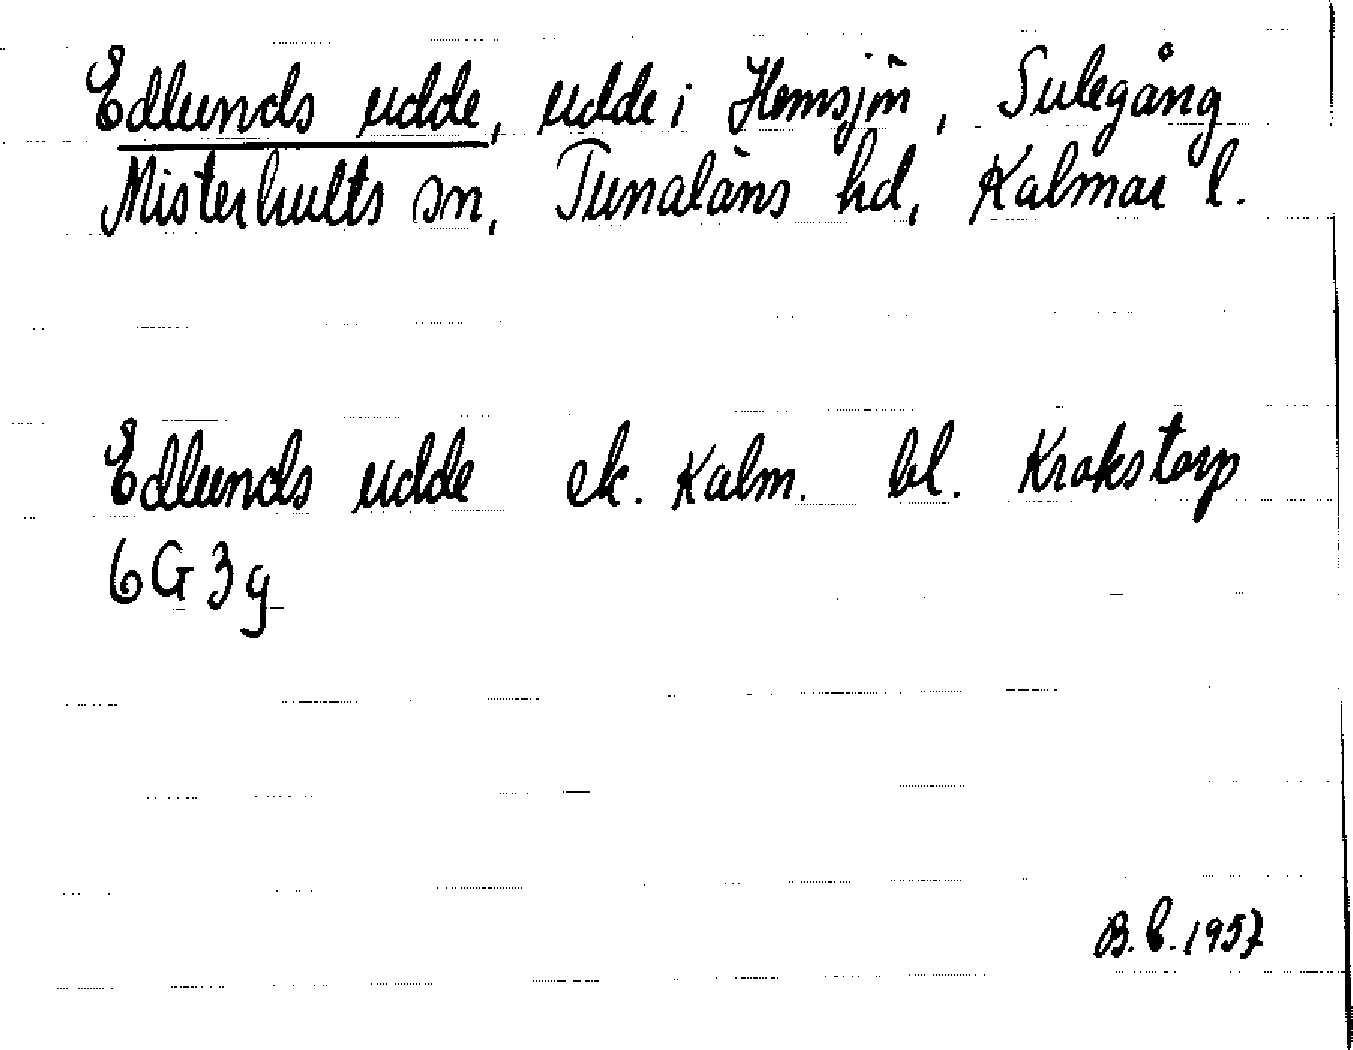 Edlunds udde, udde i Hemsjön, Sulegång
Misterhults sn, Tunaläns hd, Kalmar l.
Edlunds udde ek. Kalm. bl. Krokstorp
6G3g
B.C. 1957